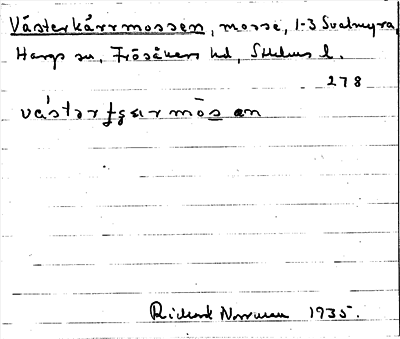 Västerkärrmossen, mosse, 1-3 Svalmyra,
Hargs sn, Frösåkers hd, Sthlms l.
278
västərçærmōsən
Rickard Norrman 1935.